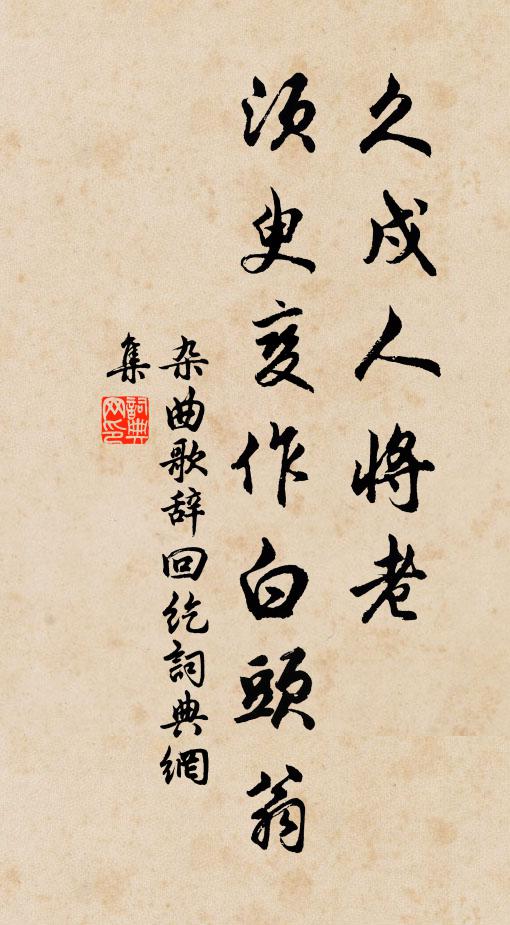 久戍人将老
须臾变作白頭翁
杂曲歌辞回纥詞典網
集
詞典
网印